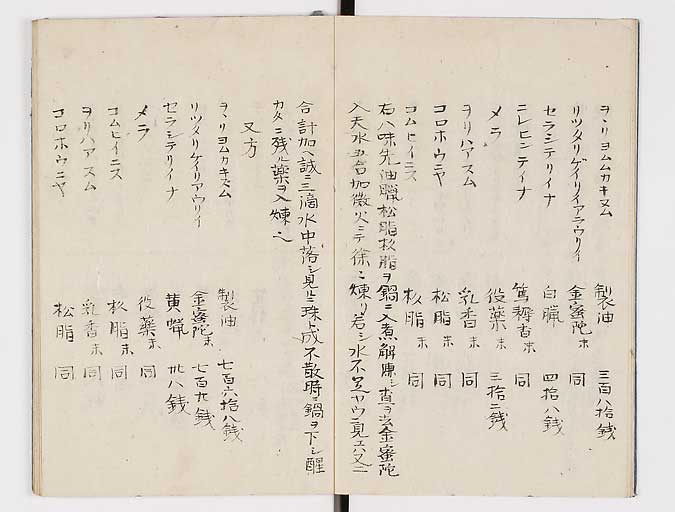 ヲヽリヨムムカキヌム 製油 三百八拾銭
リツタリゲイリイアラウリイ 金蜜陀末 同
セラシテリイナ 白蝋 四拾八銭
テレヒンテイナ 篤耨香末 同
メラ 役薬末 三拾二銭
ヲリハアスム 乳香末 同
コロホウニヤ 松脂末 同
コムヒイニス 杉脂末 同
右八味先油蝋松脂杉脂ヲ鍋ニ入煮解煉シ査ヲ去金蜜陀
入天水五合加微火ニテ徐ニ煉リ若シ水不足ヤウニ見エハ又二
合計加ヘ誠ニ三滴水中落シ見ルニ珠ト成不散時ニ鍋ヲ下シ醒
カタニ残ル薬ヲ入煉也
又方
ヲヽリヨムカキヌム 製油 七百六拾八銭
リツタリゲイリアウリイ 金蜜陀末 七百九銭
セラシテリイナ 黄蝋 九八銭
メラ 役薬末 同
コムヒイニス 杉脂末 同
ヲリハアスム 乳香末 同
コロホウニヤ 松脂 同